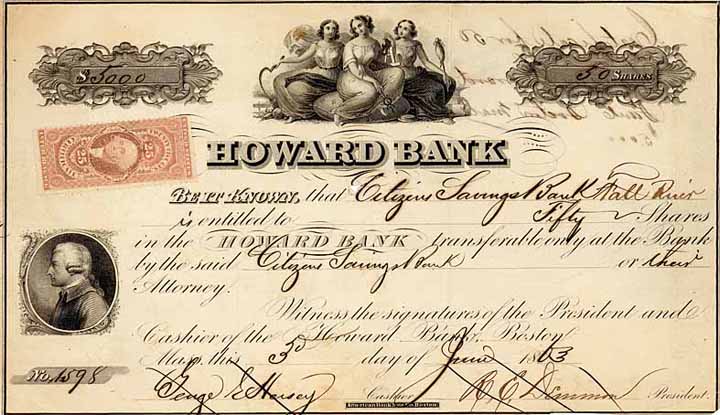 $5000
50 SHARES
25 25
HOWARD BANK
BE IT KNOWN, that Citizens Savings Bank Fall River
is entitled to Fifty Shares
in the HOWARD BANK transferable only at the Bank
by the said Citizens Savings Bank or their
Attorney.
Witness the signatures of the President and
Cashier of the Howard Bank, Boston
Mass, this 3d day of June 1863
No. 1598
George E Hersey Cashier President.
American Bank Note Co. Boston.